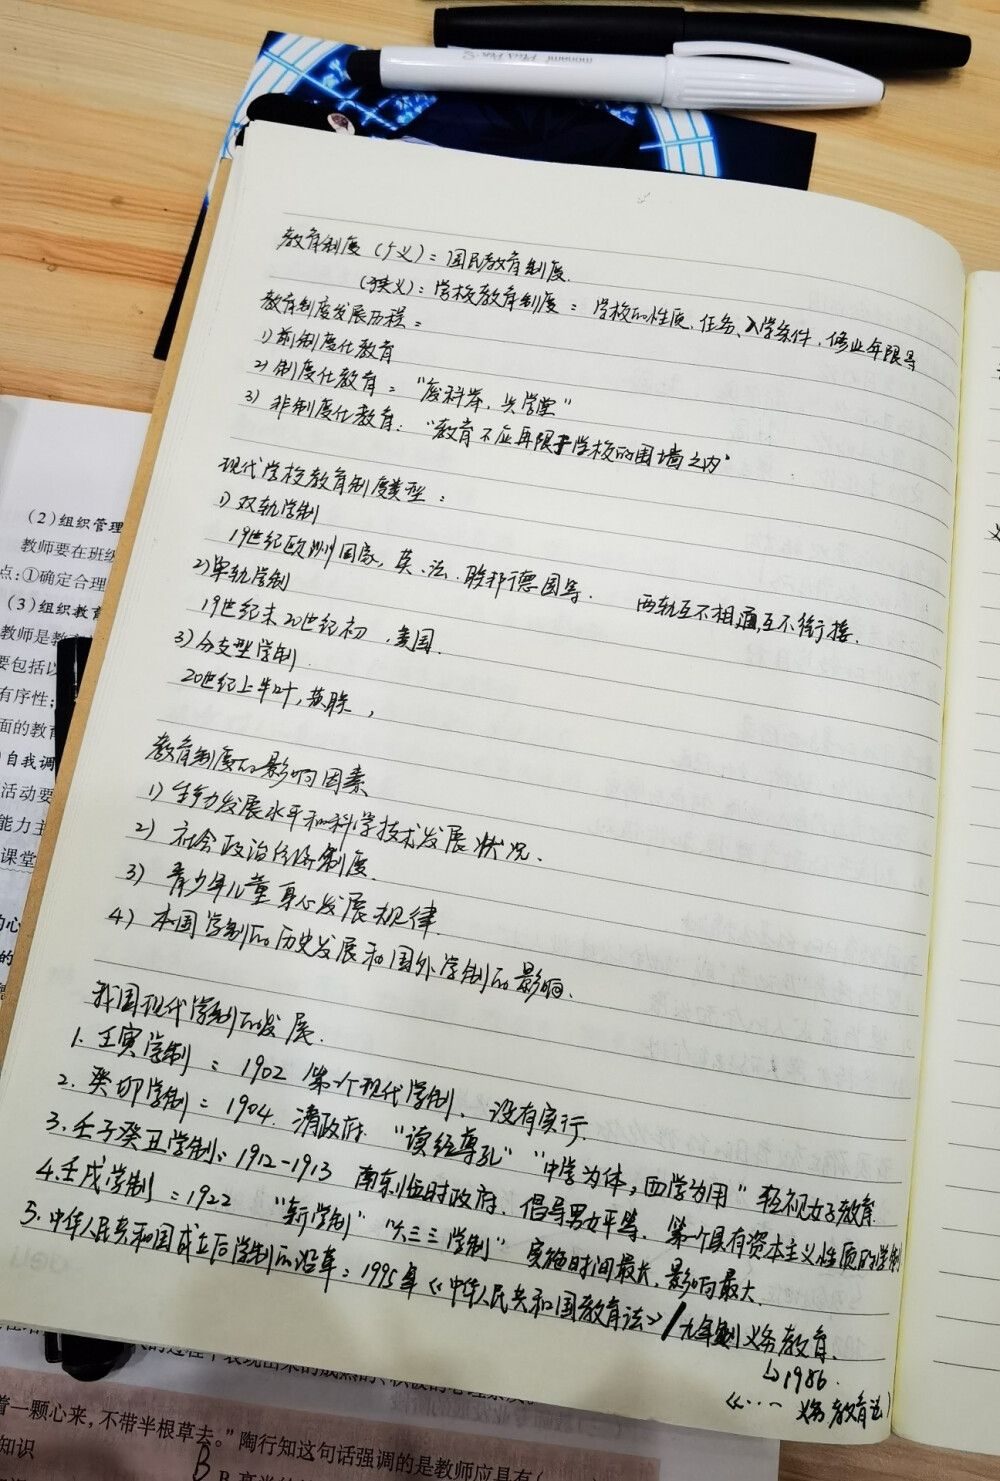 教育制度（广义）：国民教育制度.
（狭义）：学校教育制度：学校的性质、任务、入学条件、修业年限等
教育制度发展历程：
1) 前制度化教育
2) 制度化教育："废科举、兴学堂"
3) 非制度化教育："教育不应再限于学校的围墙之内"
现代学校教育制度类型：
1) 双轨学制
19世纪欧洲国家, 英、法、联邦德国等. 两轨互不相通,互不衔接.
2) 单轨学制
19世纪末20世纪初, 美国.
3) 分支型学制.
20世纪上半叶, 苏联,
教育制度的影响因素
1) 生产力发展水平和科学技术发展状况、
2) 社会政治经济制度.
3) 青少年儿童身心发展规律.
4) 本国学制的历史发展和国外学制的影响、
我国现代学制的发展.
1. 壬寅学制：1902 第一个现代学制、没有实行.
2. 癸卯学制：1904. 清政府. "读经尊孔" "中学为体, 西学为用" 轻视女子教育
3. 壬子癸丑学制：1912-1913 南京临时政府. 倡导男女平等. 第一个具有资本主义性质的学制
4. 壬戌学制：1922 "新学制" "六三三学制" 实施时间最长, 影响最大.
5. 中华人民共和国成立后学制的沿革：1995年《中华人民共和国教育法》/九年制义务教育.
↳1986.
《…义务教育法》
（2）组织管理
教师要在班级
点:①确定合理
（3）组织教育
教师是教
要包括以
有序性;
面的教育
自我调
活动要
能力主
课堂
的心
的
deli
monami Plus Pen
的过程中表现出来的成熟的、积极的心理素质。
着一颗心来,不带半根草去。"陶行知这句话强调的是教师应具有(
知识
B